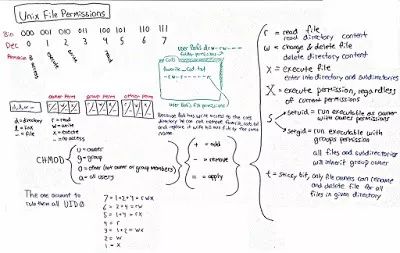 Unix File Permissions
Bin 000 001 010 011 100 101 110 111
Dec 0 1 2 3 4 5 6 7
no access
execute
write
read
User Bob's drw-rw----
Cats
favorite_cat.txt
-rw-r-----
User Bob's file permissions
Because Bob has write access to the cats
directory he can
and replace it with his own file by the same
name.
owner perm group perm other perm
d, l, or -
d = directory
l = link
- = file
r = read
w = write
x = execute
- = no access
CHMOD
u = owner
g = group
o = other (not owner or group members)
a = all users
+ = add
- = remove
= = apply
The one account to
rule them all UID 0
7 = 1+2+4 = rwx
6 = 2+4 = rw
5 = 1+4 = rx
4 = r
3 = 1+2 = wx
2 = w
1 = x
r = read file
read directory content
w = change & delete file
delete directory content
x = execute file
enter into directory and subdirectories
X = execute permission, regardless
of current permissions
s
setuid = run executable as owner
with owner permissions
setgid = run executable with
groups permission
all files and subdirectories
will inherit group owner
t = sticky bit, only file owners can rename
and delete file for all
files in given directory